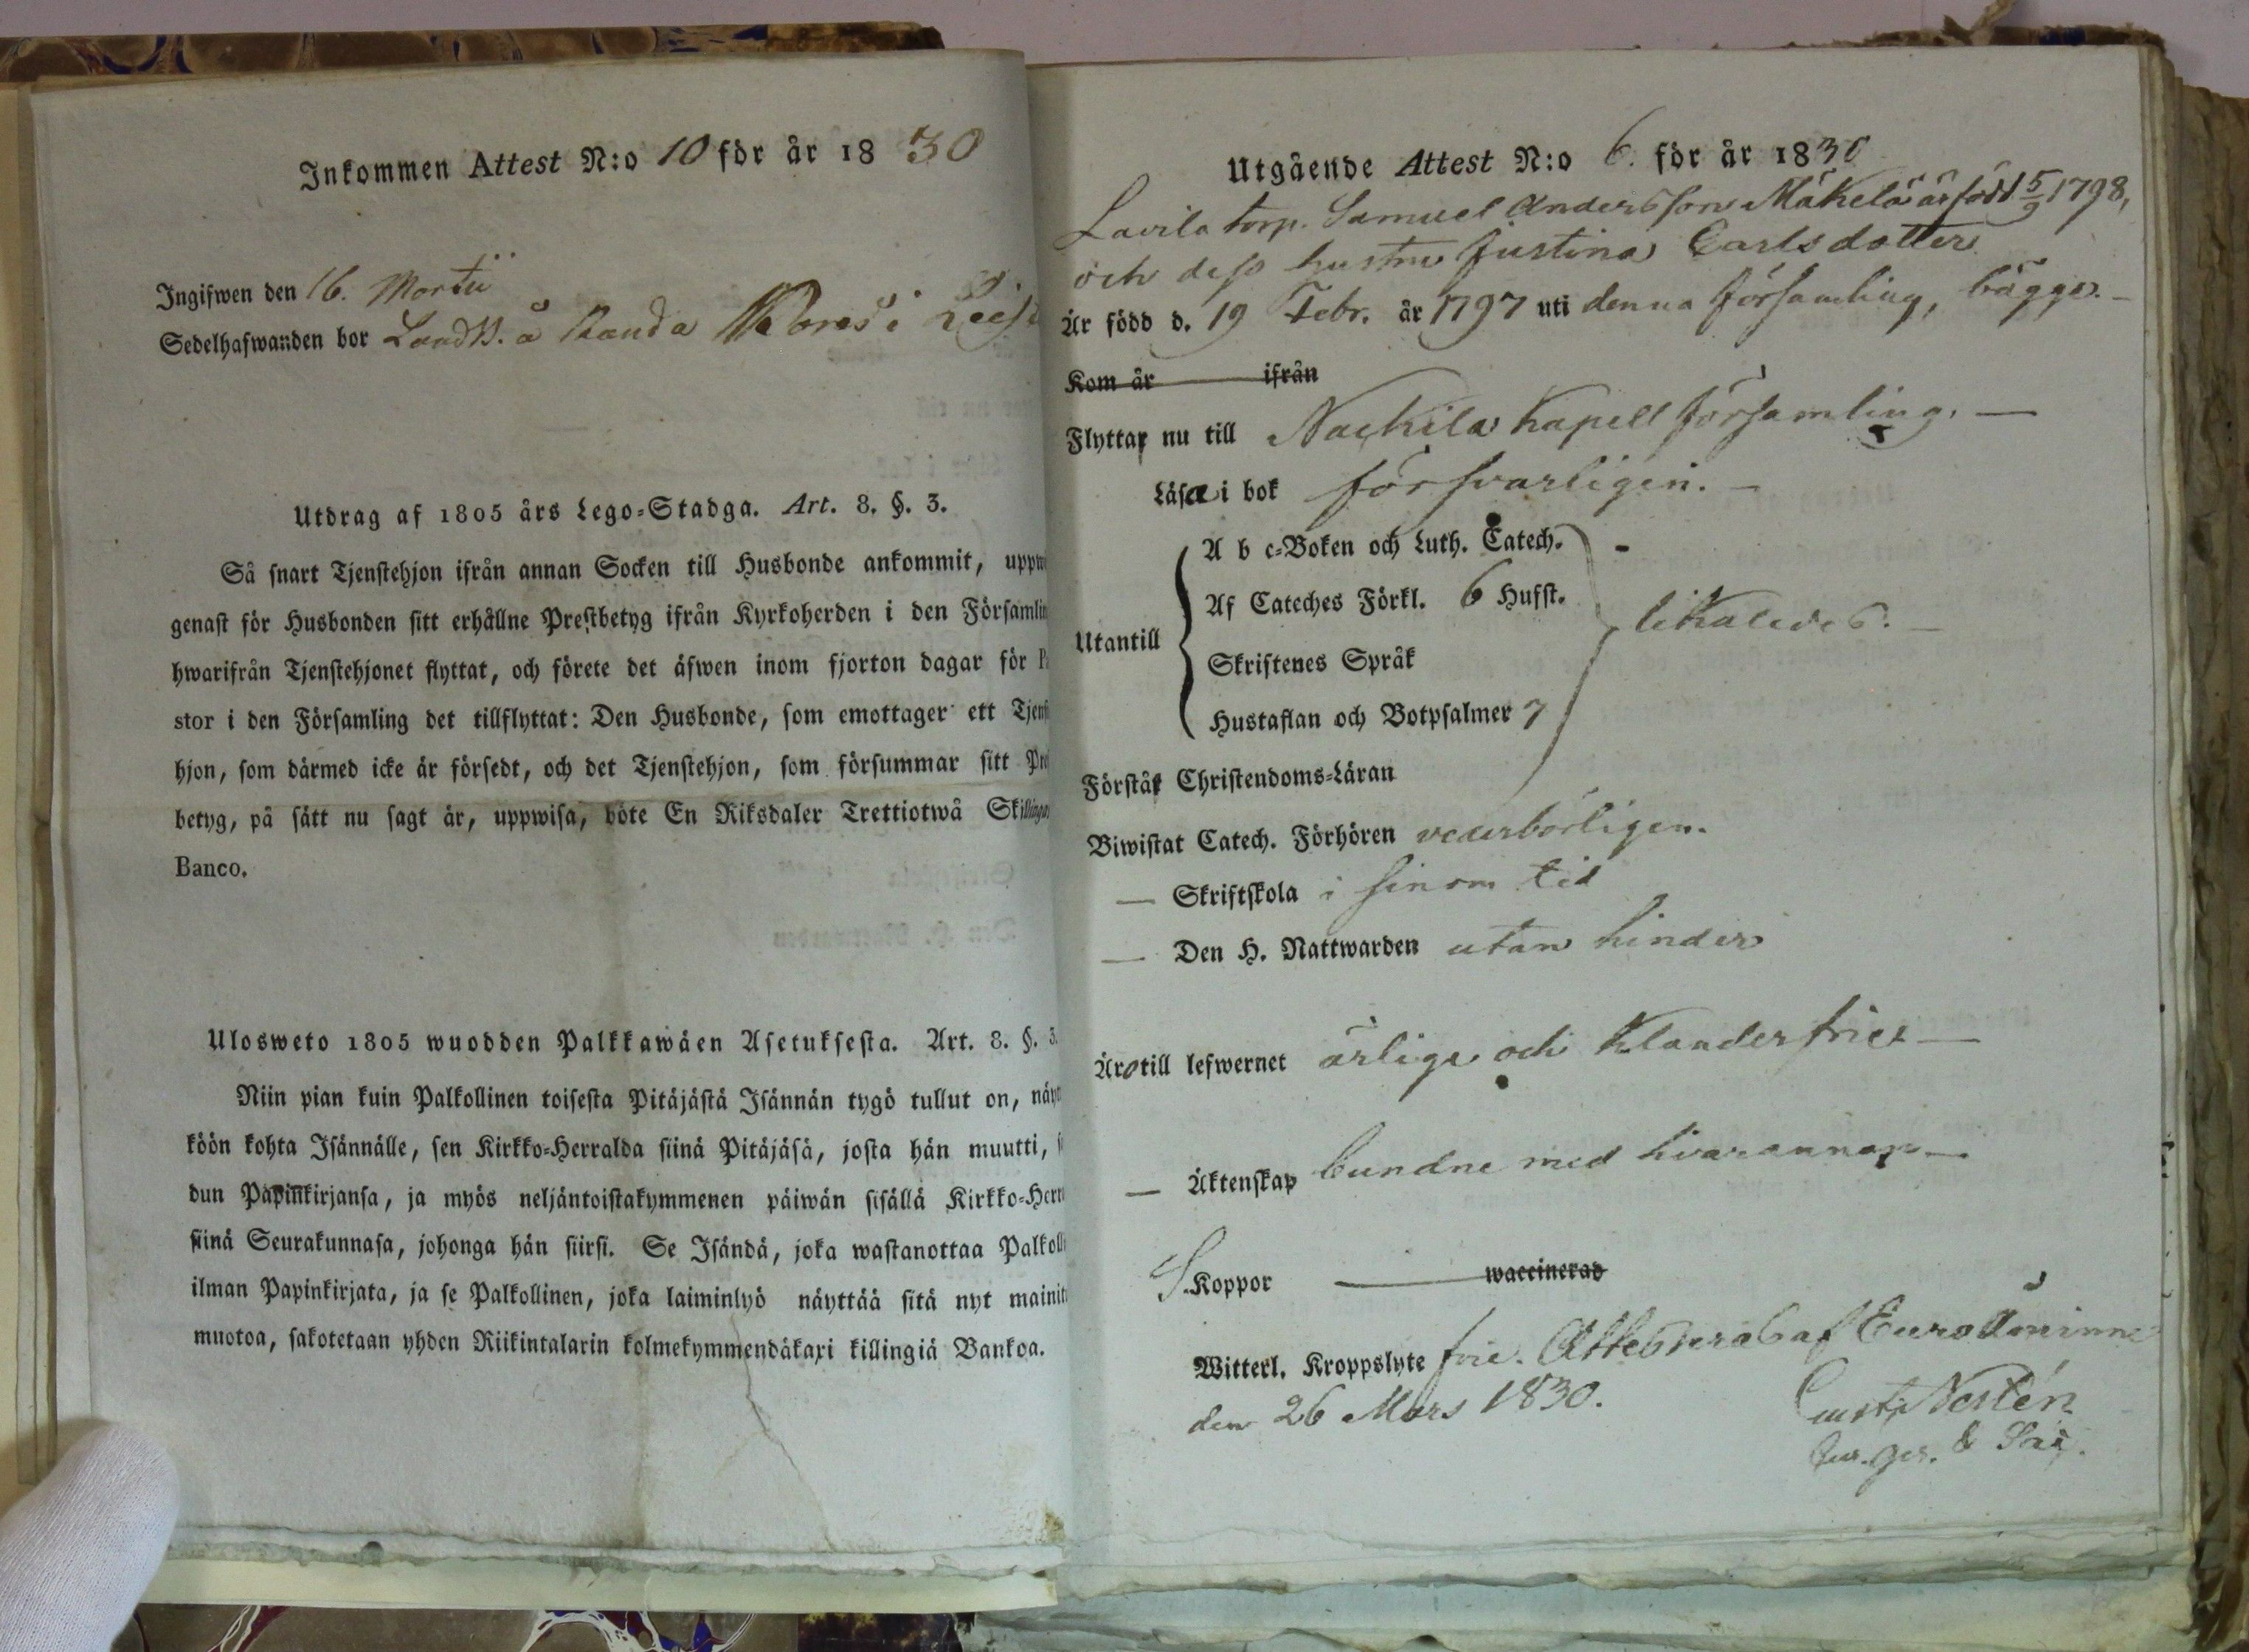 Inkommen Attest N:o 10 för år 1830
Ingifwen den 16. Martii
Sedelhafwanden bor å i
Utdrag af 1805 års Lego-Stadga. Art. 8. §. 3.
Så snart Tjenstehjon ifrån annan Socken till Husbonde ankommit, uppw
genast för Husbonden sitt erhållne Prestbetyg ifrån Kyrkoherden i den Församlin
hwarifrån Tjenstehjonet flyttat, och förete det äfwen inom fjorton dagar för P
stor i den Församling det tillflyttat: Den Husbonde, som emottager ett Tjenst
hjon, som därmed icke är försedt, och det Tjenstehjon, som försummar sitt Pre
betyg, på sätt nu sagt är, uppwisa, böte En Riksdaler Trettiotwå Skillingar
Banco.
Ulosweto 1805 wuodden Palkkawäen Asetuksesta. Art. 8. §. 3.
Niin pian kuin Palkollinen toisesta Pitäjästä Isännän tygö tullut on, näyt
köön kohta Isännälle, sen Kirkko-Herralda siinä Pitäjäsä, josta hän muutti, s
dun Papinkirjansa, ja myös neljäntoistakymmenen päiwän sisällä Kirkko-Herr
siinä Seurakunnasa, johonga hän siirsi. Se Isändä, joka wastanottaa Palkolli
ilman Papinkirjata, ja se Palkollinen, joka laiminlyö näyttää sitä nyt mainit
muotoa, sakotetaan yhden Riikintalarin kolmekymmendäkaxi killingiä Bankoa.
Utgående Attest N:o 6. för år 1830
Lavila torp. Samuel Andersson Mäkelä är född 5/9 1798,
och dess hustru Justina Carlsdotter
Är född d. 19 Febr. år 1797 uti denna församling, bägge.
Kom år ifrån
Flyttar nu till Nackila Kapell församling.
Läsa i bok försvarligen.
Utantill
A b c-Boken och Luth. Catech.
Af Cateches Förkl. 6 Hufst.
Skriftenes Språk
Hustaflan och Botpsalmer 7
likaledes.
Förstår Christendoms-Läran
Biwistat Catech. Förhören vederbörligen.
— Skriftskola i sinom tid
— Den H. Nattwarden utan hinder
Äro till lefwernet ärlige och klanderfrie
— Äktenskap bundne med hvarannan
Koppor waccinerad
Witterl. Kroppslyte frie. Attesteras af Euraåminne
den 26 Mars 1830.
Gust. Nestén